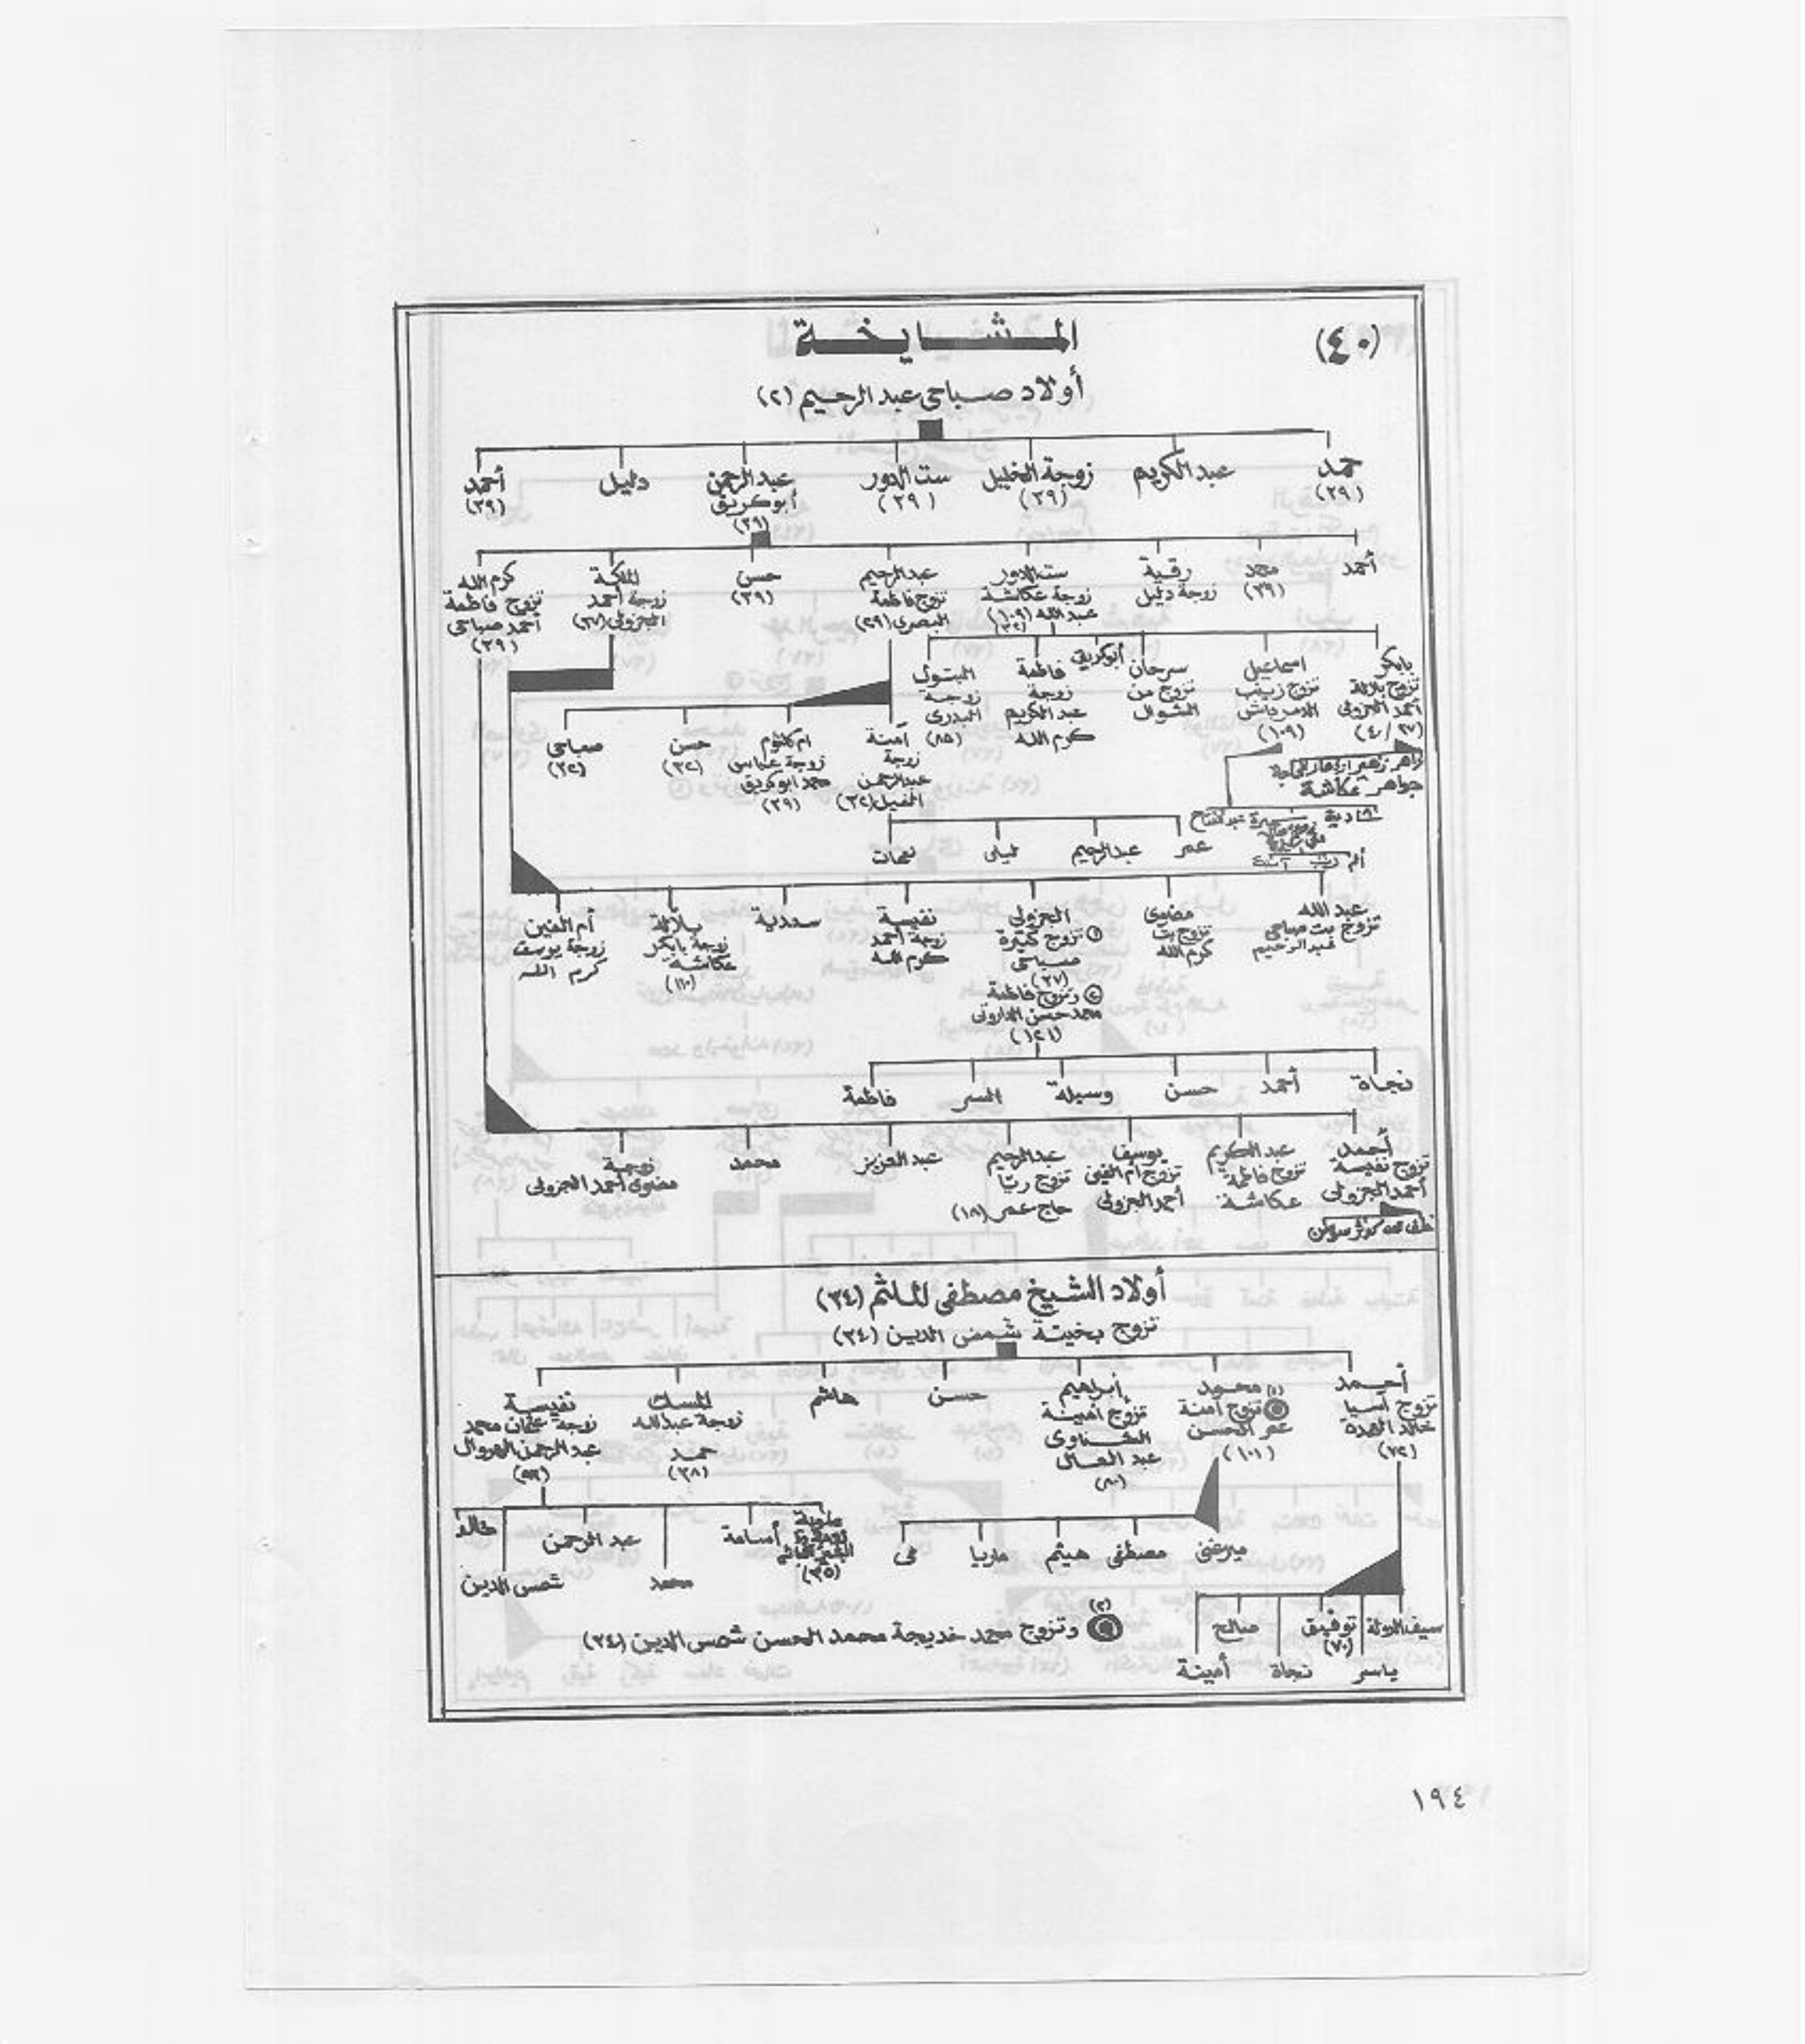 (٤٠)
المشايخة
أولاد صباحى عبد الرحيم (٢)
حمد (٣٩)
عبد الكريم
زوجة الخليل (٣٩)
ست الدور (٣٩)
عبد الرحمن أبوكريق (٣٩)
دليل
أحمد (٣٩)
أحمد
محمد (٣٩)
رقية زوجة دليل
ست الدور زوجة عكاشة عبد الله (١٠٩)
عبد الرحيم تزوج فاطمة البصرى (٣٩)
حسن (٣٩)
الملكة زوجة أحمد الجزولى (٣٧)
كرم الله تزوج فاطمة أحمد صباحى (٣٩)
بابكر تزوج بلالة أحمد الجزولى (٤٠/٣٧)
اسماعيل تزوج زينب الدمرداش (١٠٩)
سرحان تزوج من الشوال
أبوكريق
فاطمة زوجة عبد الكريم كرم الله
البتول زوجة البدرى (٨٥)
آمنة زوجة عبد الرحمن الخليل (٣٢)
ام كلثوم زوجة عباس حمد ابوكريق (٣٩)
حسن (٣٢)
صباحى (٣٢)
جواهر عكاشة
شادية
عمر
عبد الرحيم
ليلى
نعمات
عبد الله تزوج بت صباحى عبد الرحيم
مضوى تزوج بت كرم الله
الجزولى ① تزوج كتيرة صباحى (٣٧)
② وتزوج فاطمة محمد حسن الداروتى (١٢١)
نفيسة زوجة أحمد كرم الله
سعدية
بلالة زوجة بابكر عكاشة (١١٠)
أم الفين زوجة يوسف كرم الله
نجاة
أحمد
حسن
وسيلة
السر
فاطمة
أحمد تزوج نفيسة أحمد الجزولى
عبد الكريم تزوج فاطمة عكاشة
يوسف تزوج ام الفين أحمد الجزولى
عبد الرحيم تزوج ريا حاج عمر (١٨)
عبد العزيز
محمد
زوجة مضوى أحمد الجزولى
أولاد الشيخ مصطفى الملثم (٣٤)
تزوج بخيتة شمس الدين (٣٤)
أحمد تزوج آسيا خالد العدة (٧٢)
محمود (١) تزوج آمنة عمر الحسن (١٠١)
إبراهيم تزوج أمينة الشناوى عبد العال (٨٠)
حسن
هاشم
المسك زوجة عبد الله حمد (٣٨)
نفيسة زوجة عثمان محمد عبد الرحمن الهروال
ميرغنى
مصطفى
هيثم
ماريا
منى
أسامة
محمد
عبد الرحمن
شمس الدين
خالد
سيف الدولة
ياسر
توفيق (٧٠)
نجاة
صالح
أمينة
(٢) وتزوج محمد خديجة محمد الحسن شمس الدين (٣٤)
١٩٤